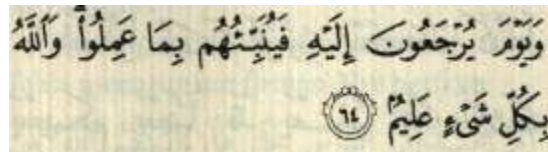 وَيَوْمَ يُرْجَعُونَ إِلَيْهِ فَيُنَبِّئُهُم بِمَا عَمِلُوا۟ وَٱللَّهُ
بِكُلِّ شَىْءٍ عَلِيمٌۢ ٦٤